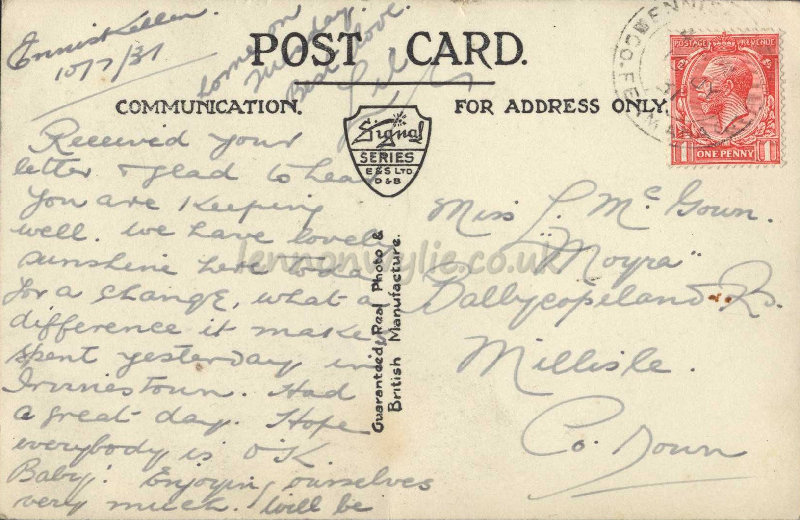 Enniskillen.
10/7/31
home on
Tuesday.
Best love.
POST CARD.
COMMUNICATION.
FOR ADDRESS ONLY.
Signal
SERIES
E & S LTD
D & B
ENNIS
CO. FERM
POSTAGE REVENUE
1 ONE PENNY 1
Received your
letter & glad to hear
you are keeping
well. We have lovely
sunshine here today
for a change, what a
difference it makes
spent yesterday in
Irvinestown. Had
a great day. Hope
everybody is O'K
Baby! Enjoying ourselves
very much. Will be
Guaranteed Real Photo &
British Manufacture.
lennonwylie.co.uk
Miss L. McGown.
"Moyra"
Ballycopeland Rd.
Millisle.
Co. Down